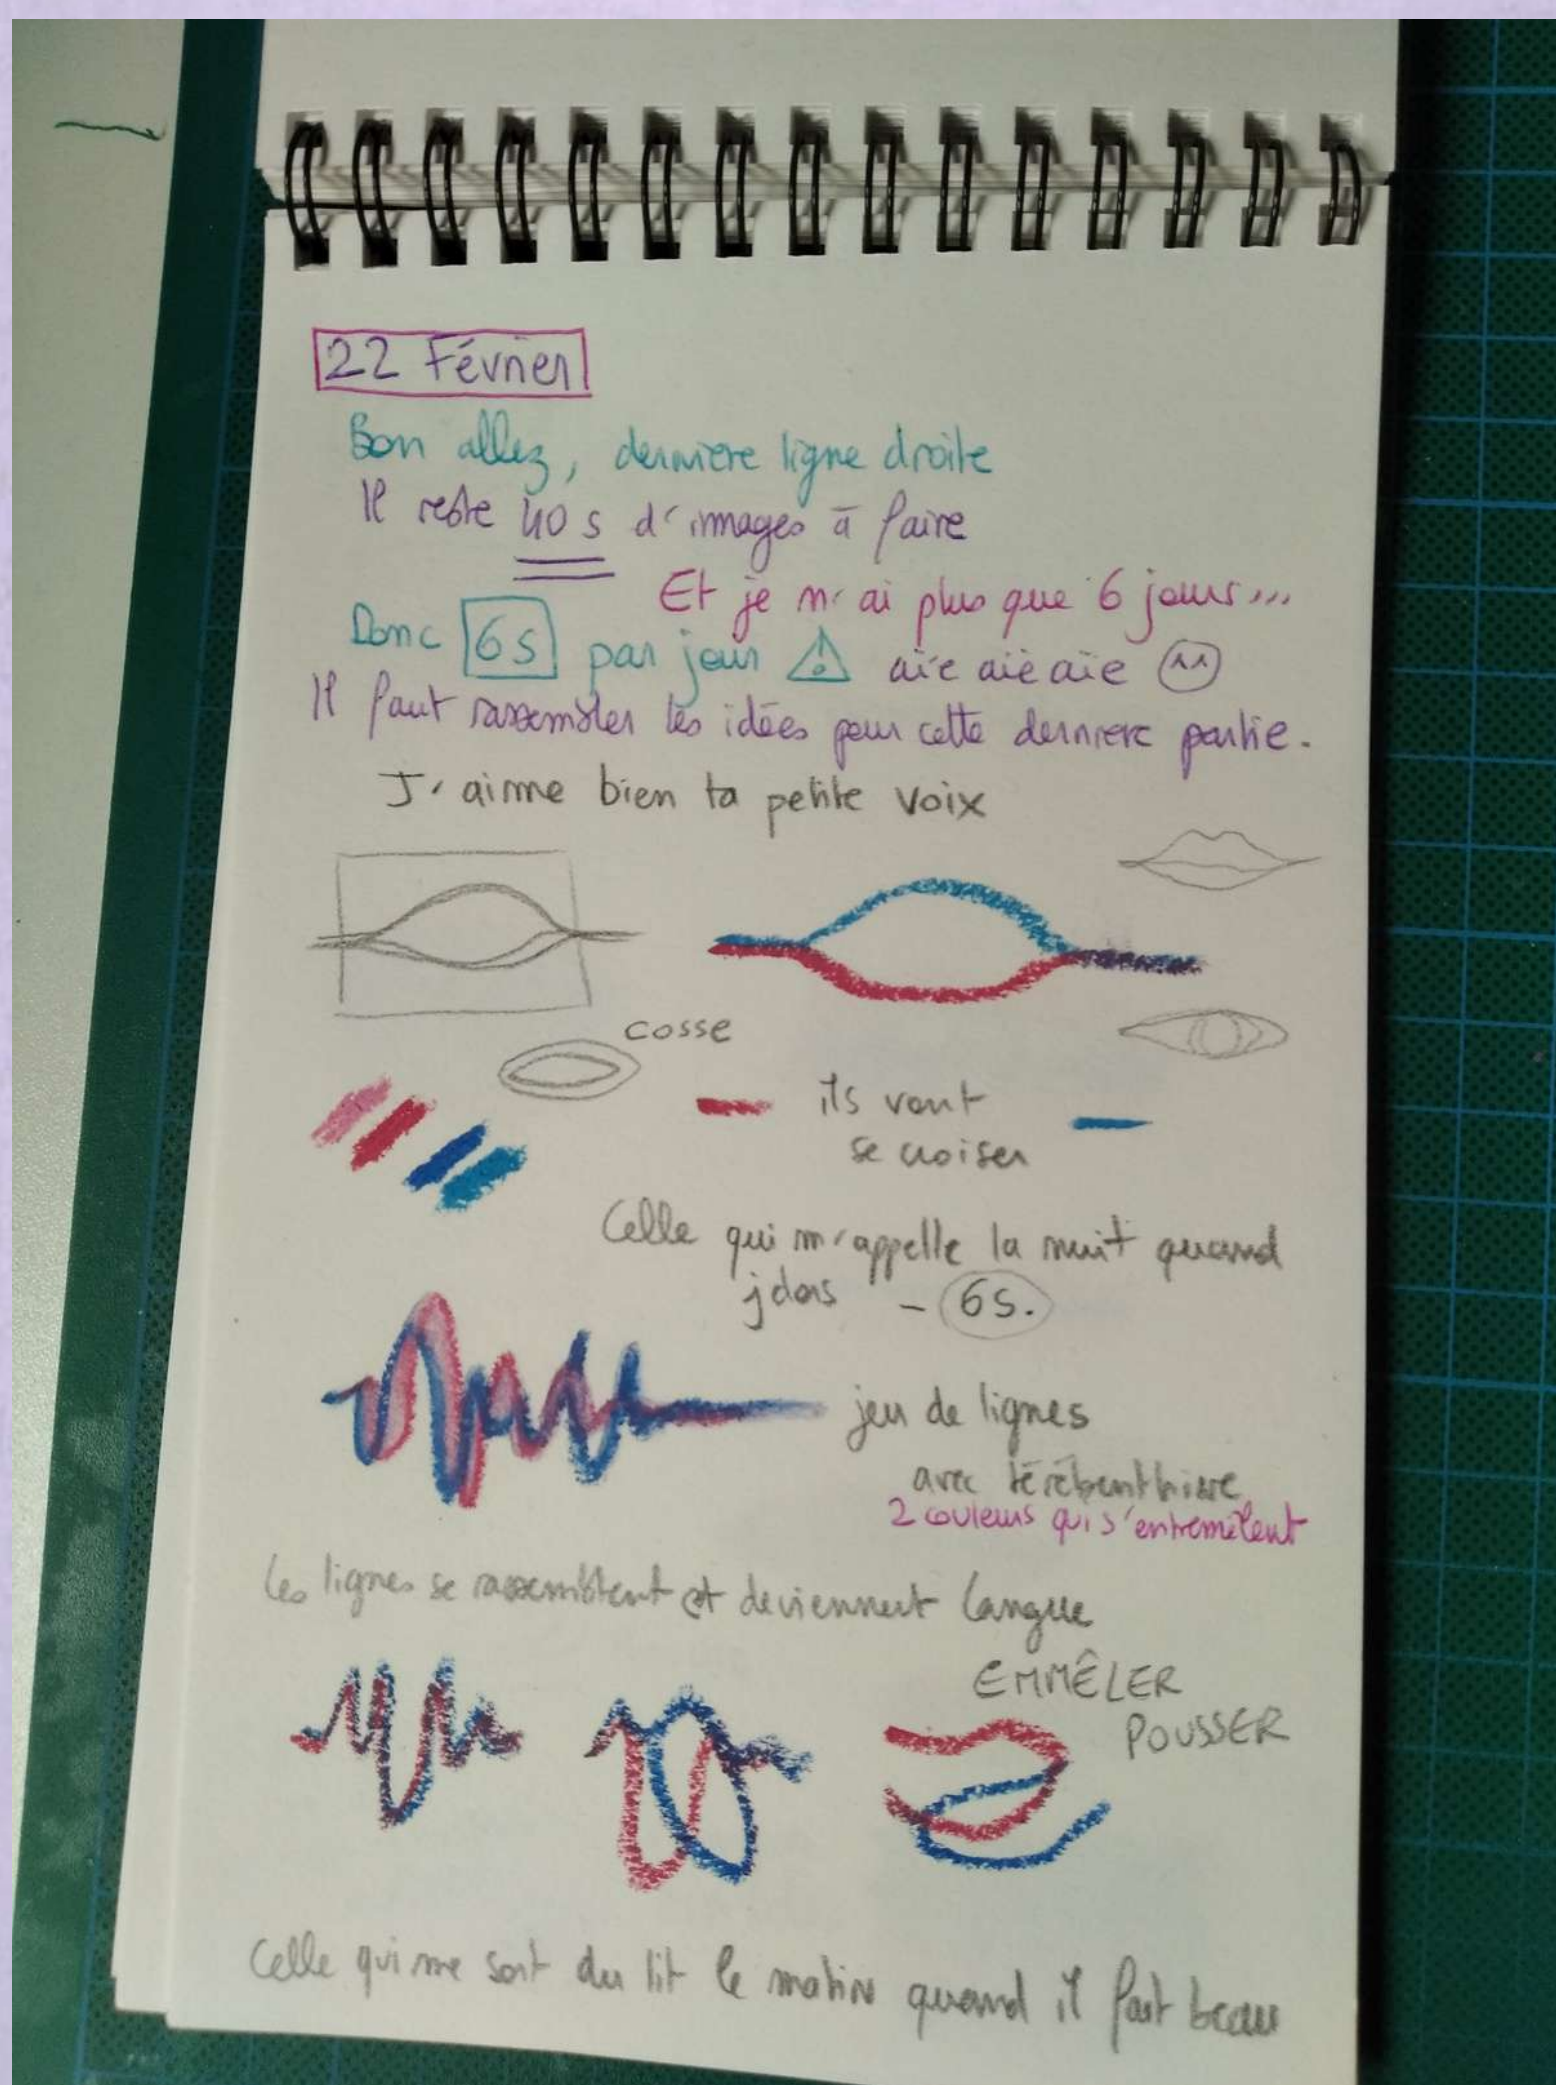 22 Février
Bon allez, dernière ligne droite
Il reste 40 s d'images à faire
Et je n'ai plus que 6 jours...
Donc 6s par jour ! aïe aïe aïe ^^
Il faut rassembler les idées pour cette dernière partie.
J'aime bien ta petite voix
cosse
ils vont
se croiser
Celle qui m'appelle la nuit quand
j dors - 6s.
jeu de lignes
avec térébenthine
2 couleurs qui s'entremêlent
Les lignes se rassemblent et deviennent langue
EMMÊLER
POUSSER
Celle qui me sort du lit le matin quand il fait beau